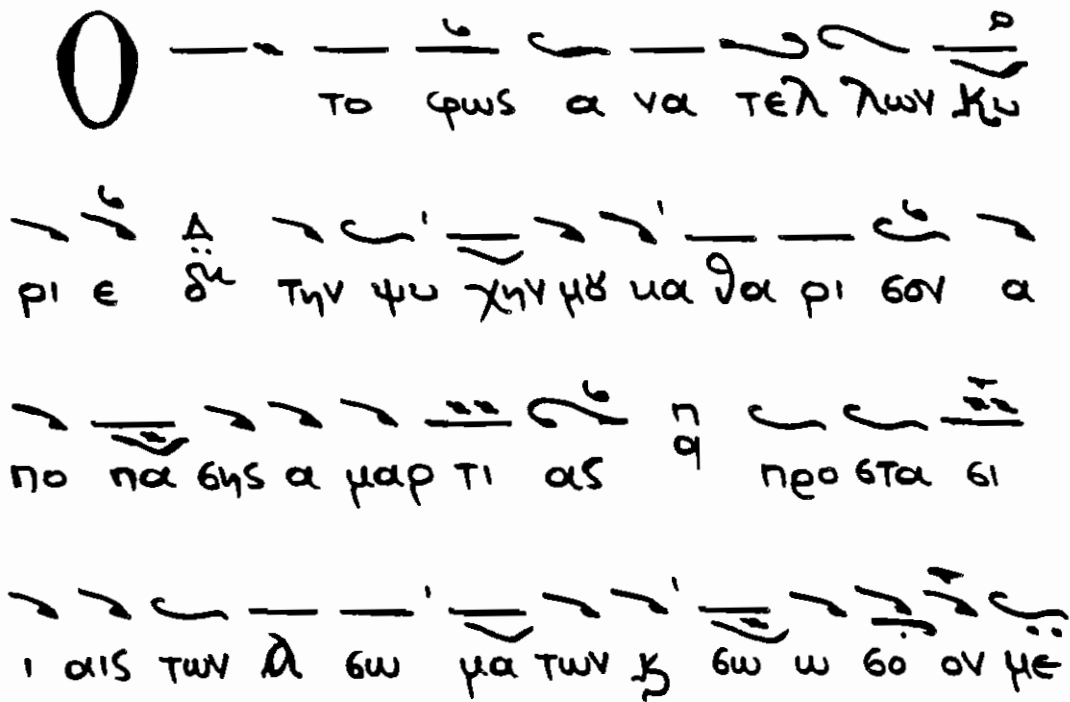 Ο το φως α να τελ λων Κυ
ρι ε δι την ψυ χην μȣ κα θα ρι σον α
πο πα σης α μαρ τι ας π α προ στα σι
ι αις των Α σω μα των ϗ σω ω σο ον με